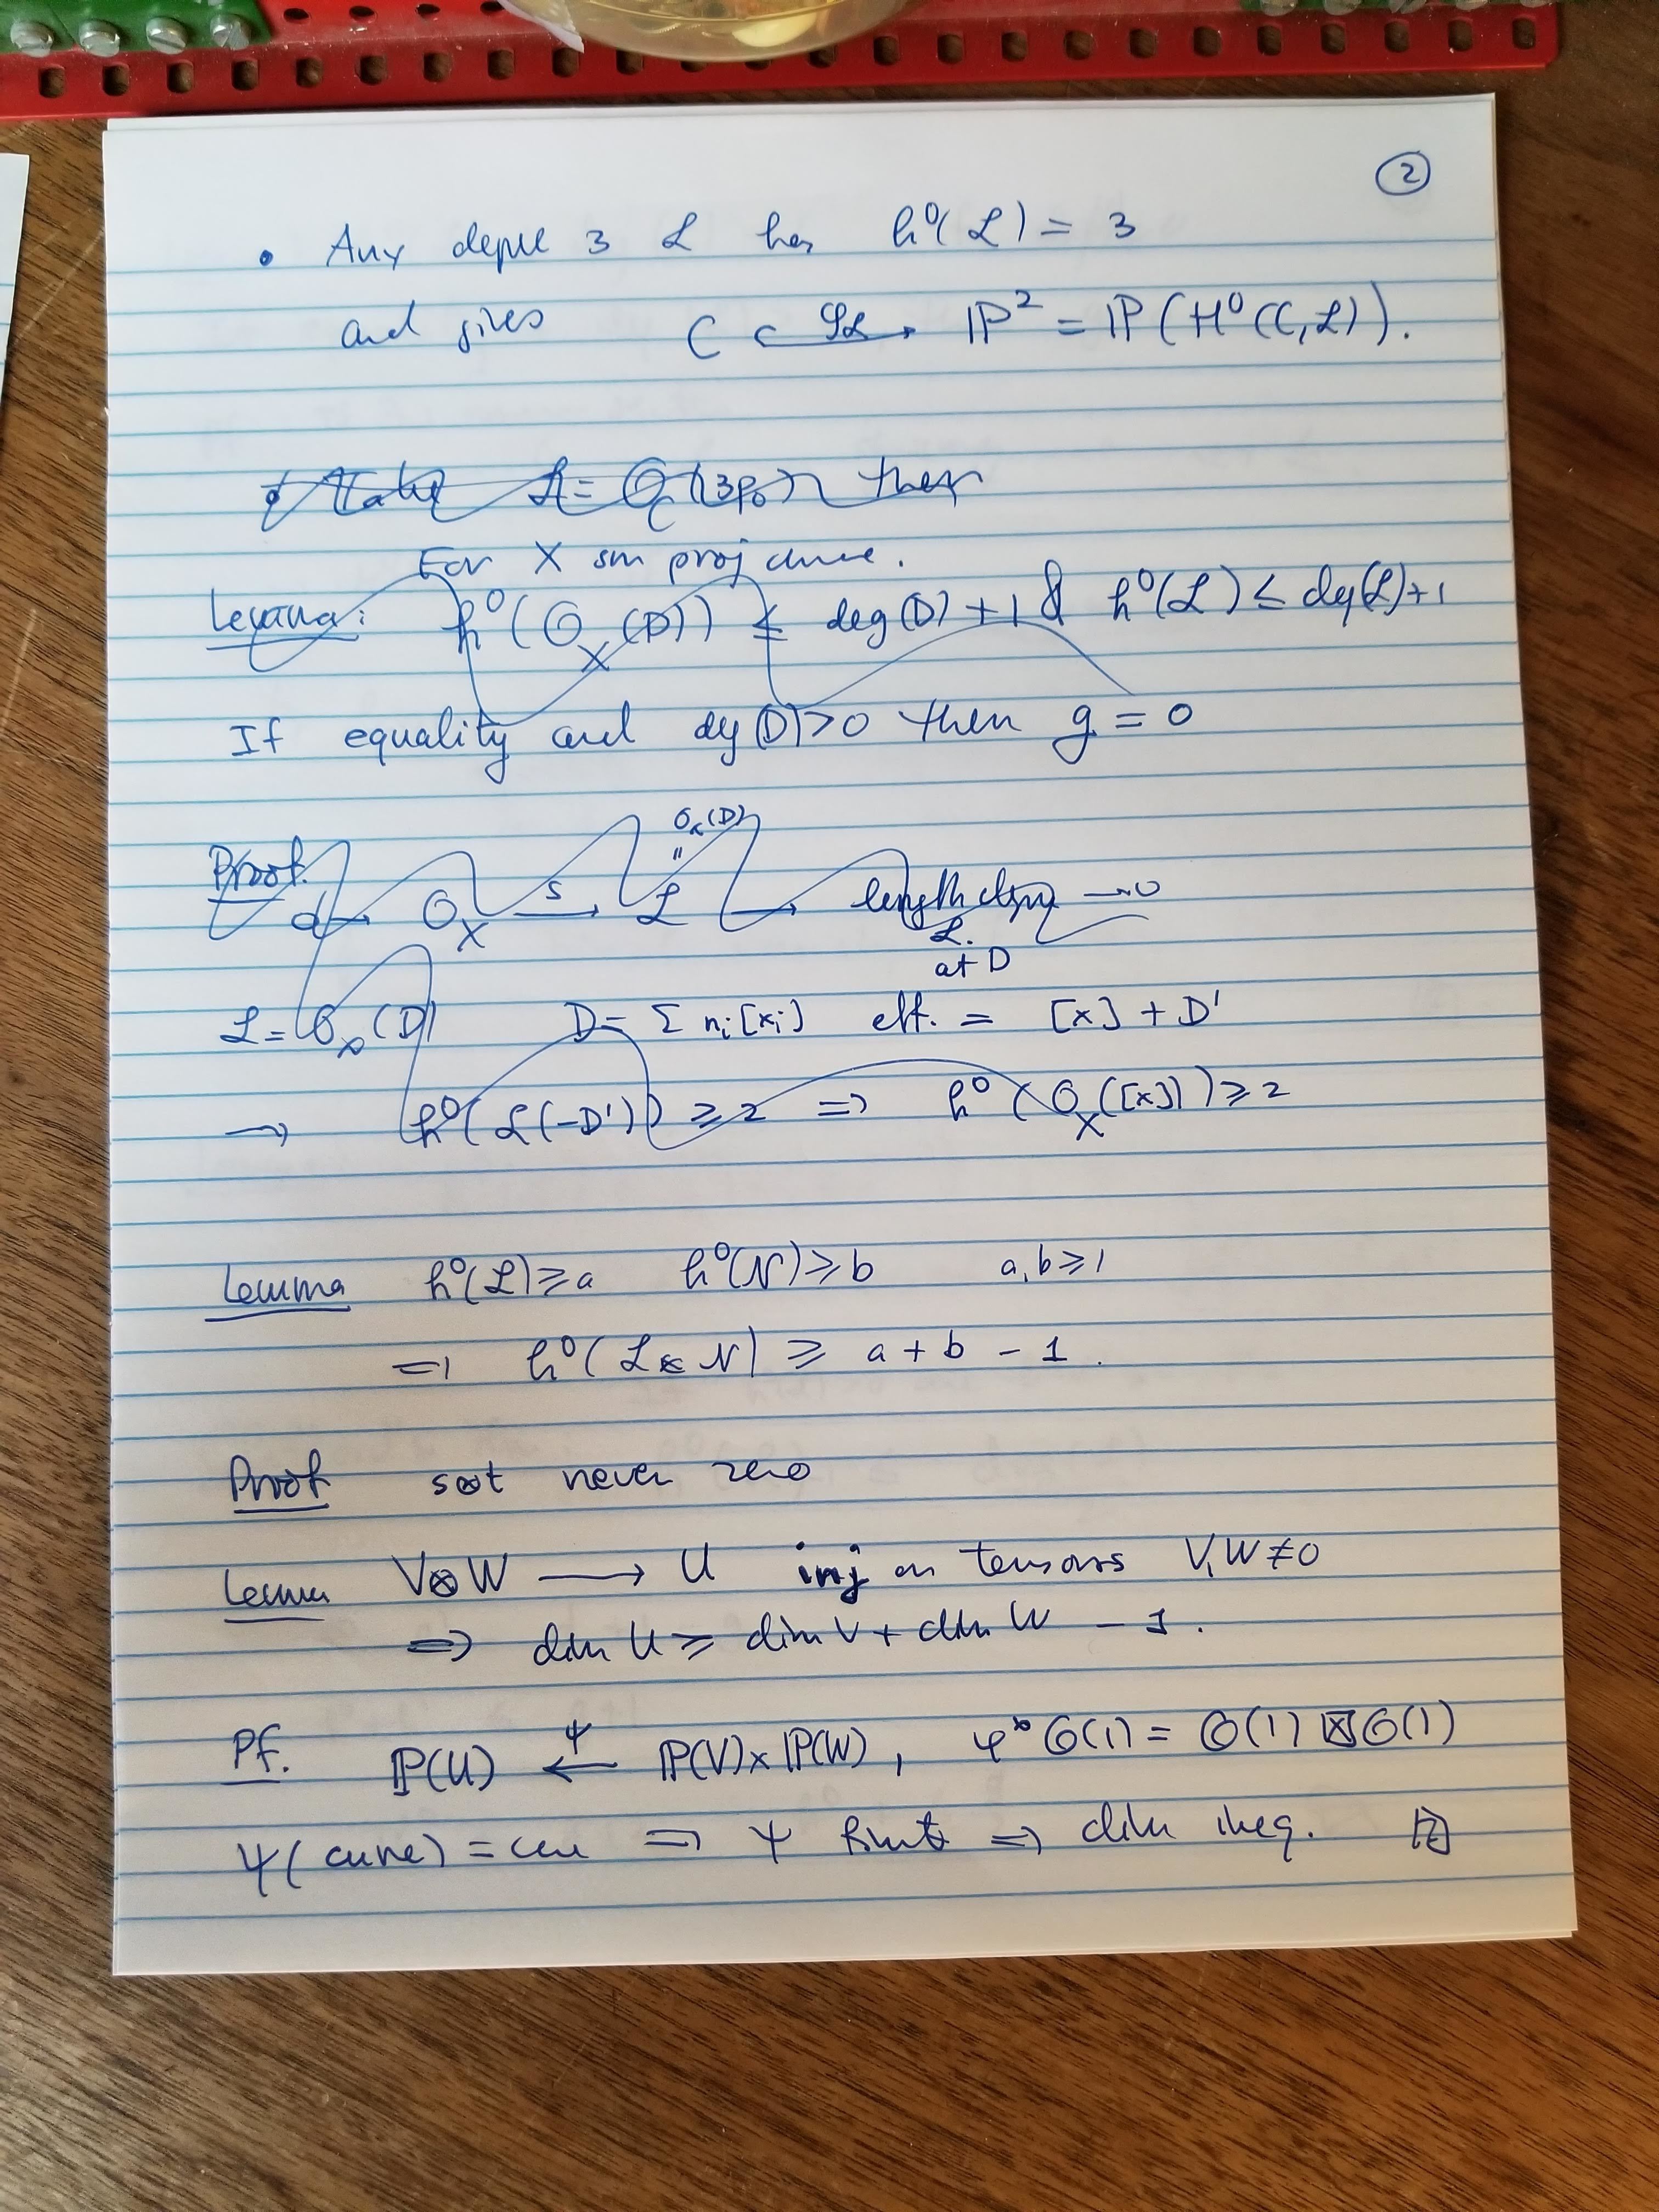 ②
• Any degree 3 ℒ has h⁰(ℒ) = 3
and gives C ↪^{φ_ℒ} ℙ² = ℙ(H⁰(C,ℒ)).
• Take ℒ = O_C(3p₀) then
For X sm proj curve.
Lemma: h⁰(O_X(D)) ≤ deg(D) + 1 & h⁰(ℒ) ≤ deg(ℒ)+1
If equality and deg(D)>0 then g = 0
O_X(D)
"
Proof. 0 → O_X →^{s} ℒ → length deg → 0
ℒ.
at D
ℒ = O_X(D) D = Σ n_i[x_i] eff. = [x] + D'
→ h⁰(ℒ(-D')) ≥ 2 ⇒ h⁰(O_X([x])) ≥ 2
Lemma h⁰(ℒ) ≥ a h⁰(N) ≥ b a, b ≥ 1
⇒ h⁰(ℒ⊗N) ≥ a + b - 1.
Proof s⊗t never zero
Lemma V⊗W → U inj on tensors V, W ≠ 0
⇒ dim U ≥ dim V + dim W - 1.
Pf. ℙ(U) ←^{ψ} ℙ(V) × ℙ(W), ψ* O(1) = O(1) ⊠ O(1)
ψ(curve) = curve ⇒ ψ finite ⇒ dim ineq. □